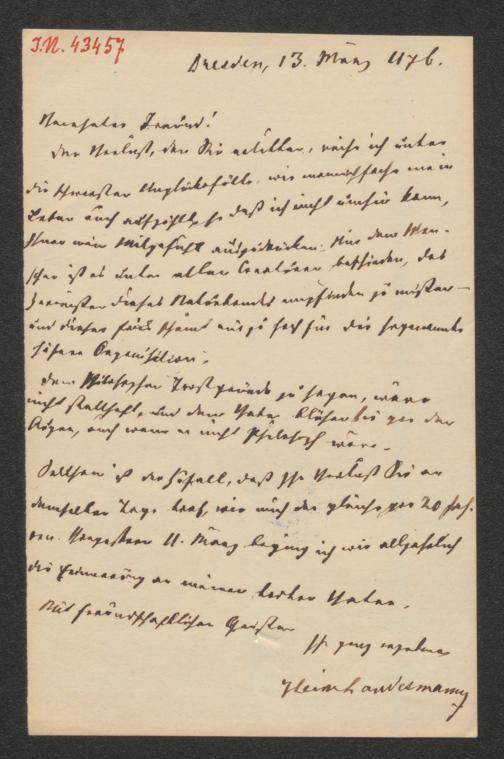 I.N. 43457
Dresden, 13. März 1876.
Verehrter Freund!
Der Verlust, den Sie erlitten, reihe ich unter
die schwersten Unglücksfälle, wie mannichfache mein
Leben auch aufzählt, so daß ich nicht umhin kann,
Ihnen mein Mitgefühl auszudrücken. Nur dem Men-
schen ist es unter allen Creaturen beschieden, das
Zerreißen dieses Naturbandes empfinden zu müssen —
und dieser Preis scheint mir zu hoch für die sogenannte
höhere Organisation.
Dem Philosophen Trostgründe zu sagen, wäre
nicht statthaft, und dem Vater klänge es
auch wenn er nicht Philosoph wäre.
Seltsam ist der Zufall, daß Ihr Verlust Sie an
demselben Tage traf, wie mich der gleiche vor 20 Jah-
ren. Vorgestern 11. März beging ich wie alljährlich
die Erinnerung an meinen Vater.
Mit freundschaftlichen Grüßen
Ihr ganz ergebener
Heinr. Landesmann